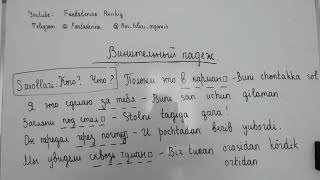 Youtube: Fantadenine Rustiliy
Telegram: @ Fantadenine. @ Rus.tilini.organish
Винительный падеж.
Savollari. Кого? Что? Положи это в карман - Buni chontakka sol
Я это сделаю за тебя - Buni san uchun qilaman
Загляни под стол - Stolni tagiga qara!
Он передал через почту - U pochtadan berib yubordi.
Мы увидели сквозь туман - Biz tuman orasidan kördik
ortidan